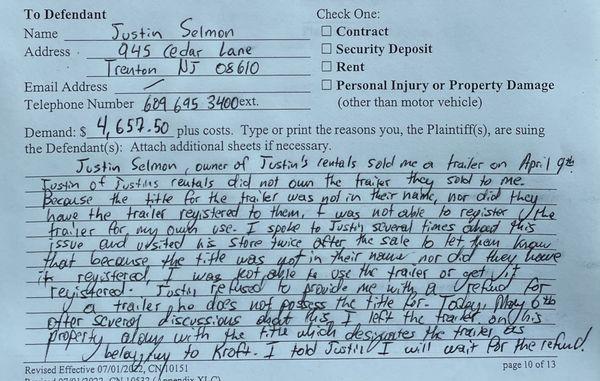 To Defendant
Name Justin Selmon
Address 945 Cedar Lane
Trenton NJ 08610
Email Address
Telephone Number 609 695 3400 ext.
Check One:
☐ Contract
☐ Security Deposit
☐ Rent
☐ Personal Injury or Property Damage
(other than motor vehicle)
Demand: $ 4,657.50 plus costs. Type or print the reasons you, the Plaintiff(s), are suing
the Defendant(s): Attach additional sheets if necessary.
Justin Selmon, owner of Justin's rentals sold me a trailer on April 9th.
Justin of Justins rentals did not own the trailer they sold to me.
Because the title for the trailer was not in their name, nor did they
have the trailer registered to them, I was not able to register the
trailer for my own use. I spoke to Justin several times about this
issue and visited his store twice after the sale to let them know
that because the title was not in their name nor did they have
it registered, I was not able to use the trailer or get it
registered. Justin refused to provide me with a refund for
a trailer he does not possess the title for. Today, May 6th
after several discussions about this, I left the trailer on his
property along with the title which designates the trailer as
belonging to Kroft. I told Justin I will wait for the refund!
Revised Effective 07/01/2022, CN 10151
page 10 of 13